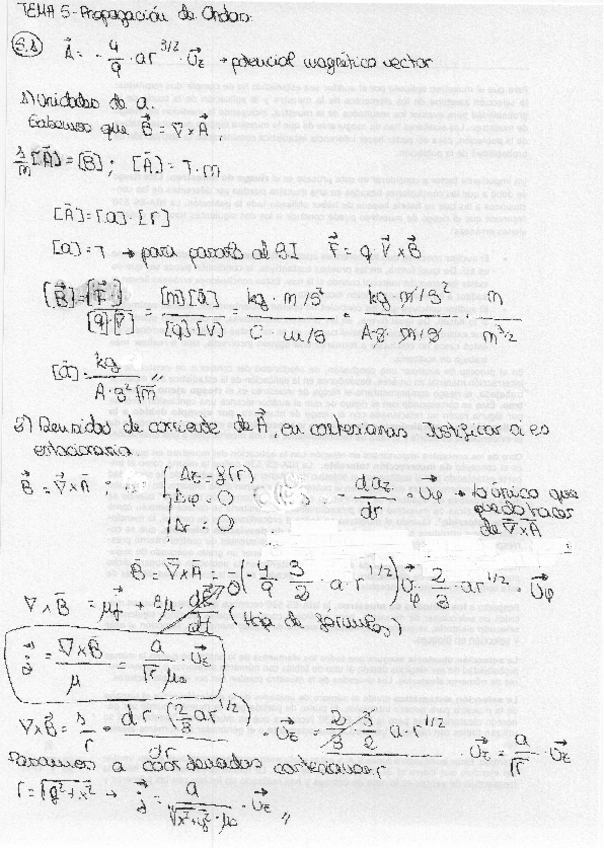 TEMA 5 - Propagación de Ondas.
5.1 A⃗ = - 4/9 · a r^3/2 · U⃗z → potencial magnético vector
1) Unidades de a.
Sabemos que B⃗ = ∇ × A⃗,
1/m [A⃗] = [B⃗] ; [A⃗] = T · m
[A⃗] = [a] · [r]
[a] = T → para pasarlo al SI F⃗ = q · V⃗ × B⃗
[B⃗] = [F⃗]/[q]·[V⃗] = [m][a⃗]/[q]·[V] = kg · m/s²/C · m/s = kg · m/s²/A·s · m/s · m/m^3/2
[a⃗] = kg/A·s²√m //
Densidad de corriente de A⃗, en cartesianas. Justificar si es
estacionaria.
B⃗ = ∇⃗ × A⃗ ; Az = f(r) Aφ = 0 Ar = 0 - daz/dr · U⃗φ → lo único que puedo hacer de ∇⃗ × A⃗
B⃗ = ∇⃗ × A⃗ = - (- 4/9 3/2 · a · r^1/2) U⃗φ 2/3 · a r^1/2 · U⃗φ
∇ × B⃗ = μj⃗ + εμ · dE⃗/dt 0 (Hoja de fórmulas)
j⃗ = ∇ × B⃗/μ = a/√r μ₀ · U⃗z
∇ × B⃗ = 1/r · dr · (2/3 a r^1/2)/dr · U⃗z = 2/3 · 3/2 a · r^1/2/r · U⃗z = a/√r · U⃗z
Pasamos a coordenadas cartesianas
r = √y² + x² → j⃗ = a/∜x² + y² · μ₀ · U⃗z //